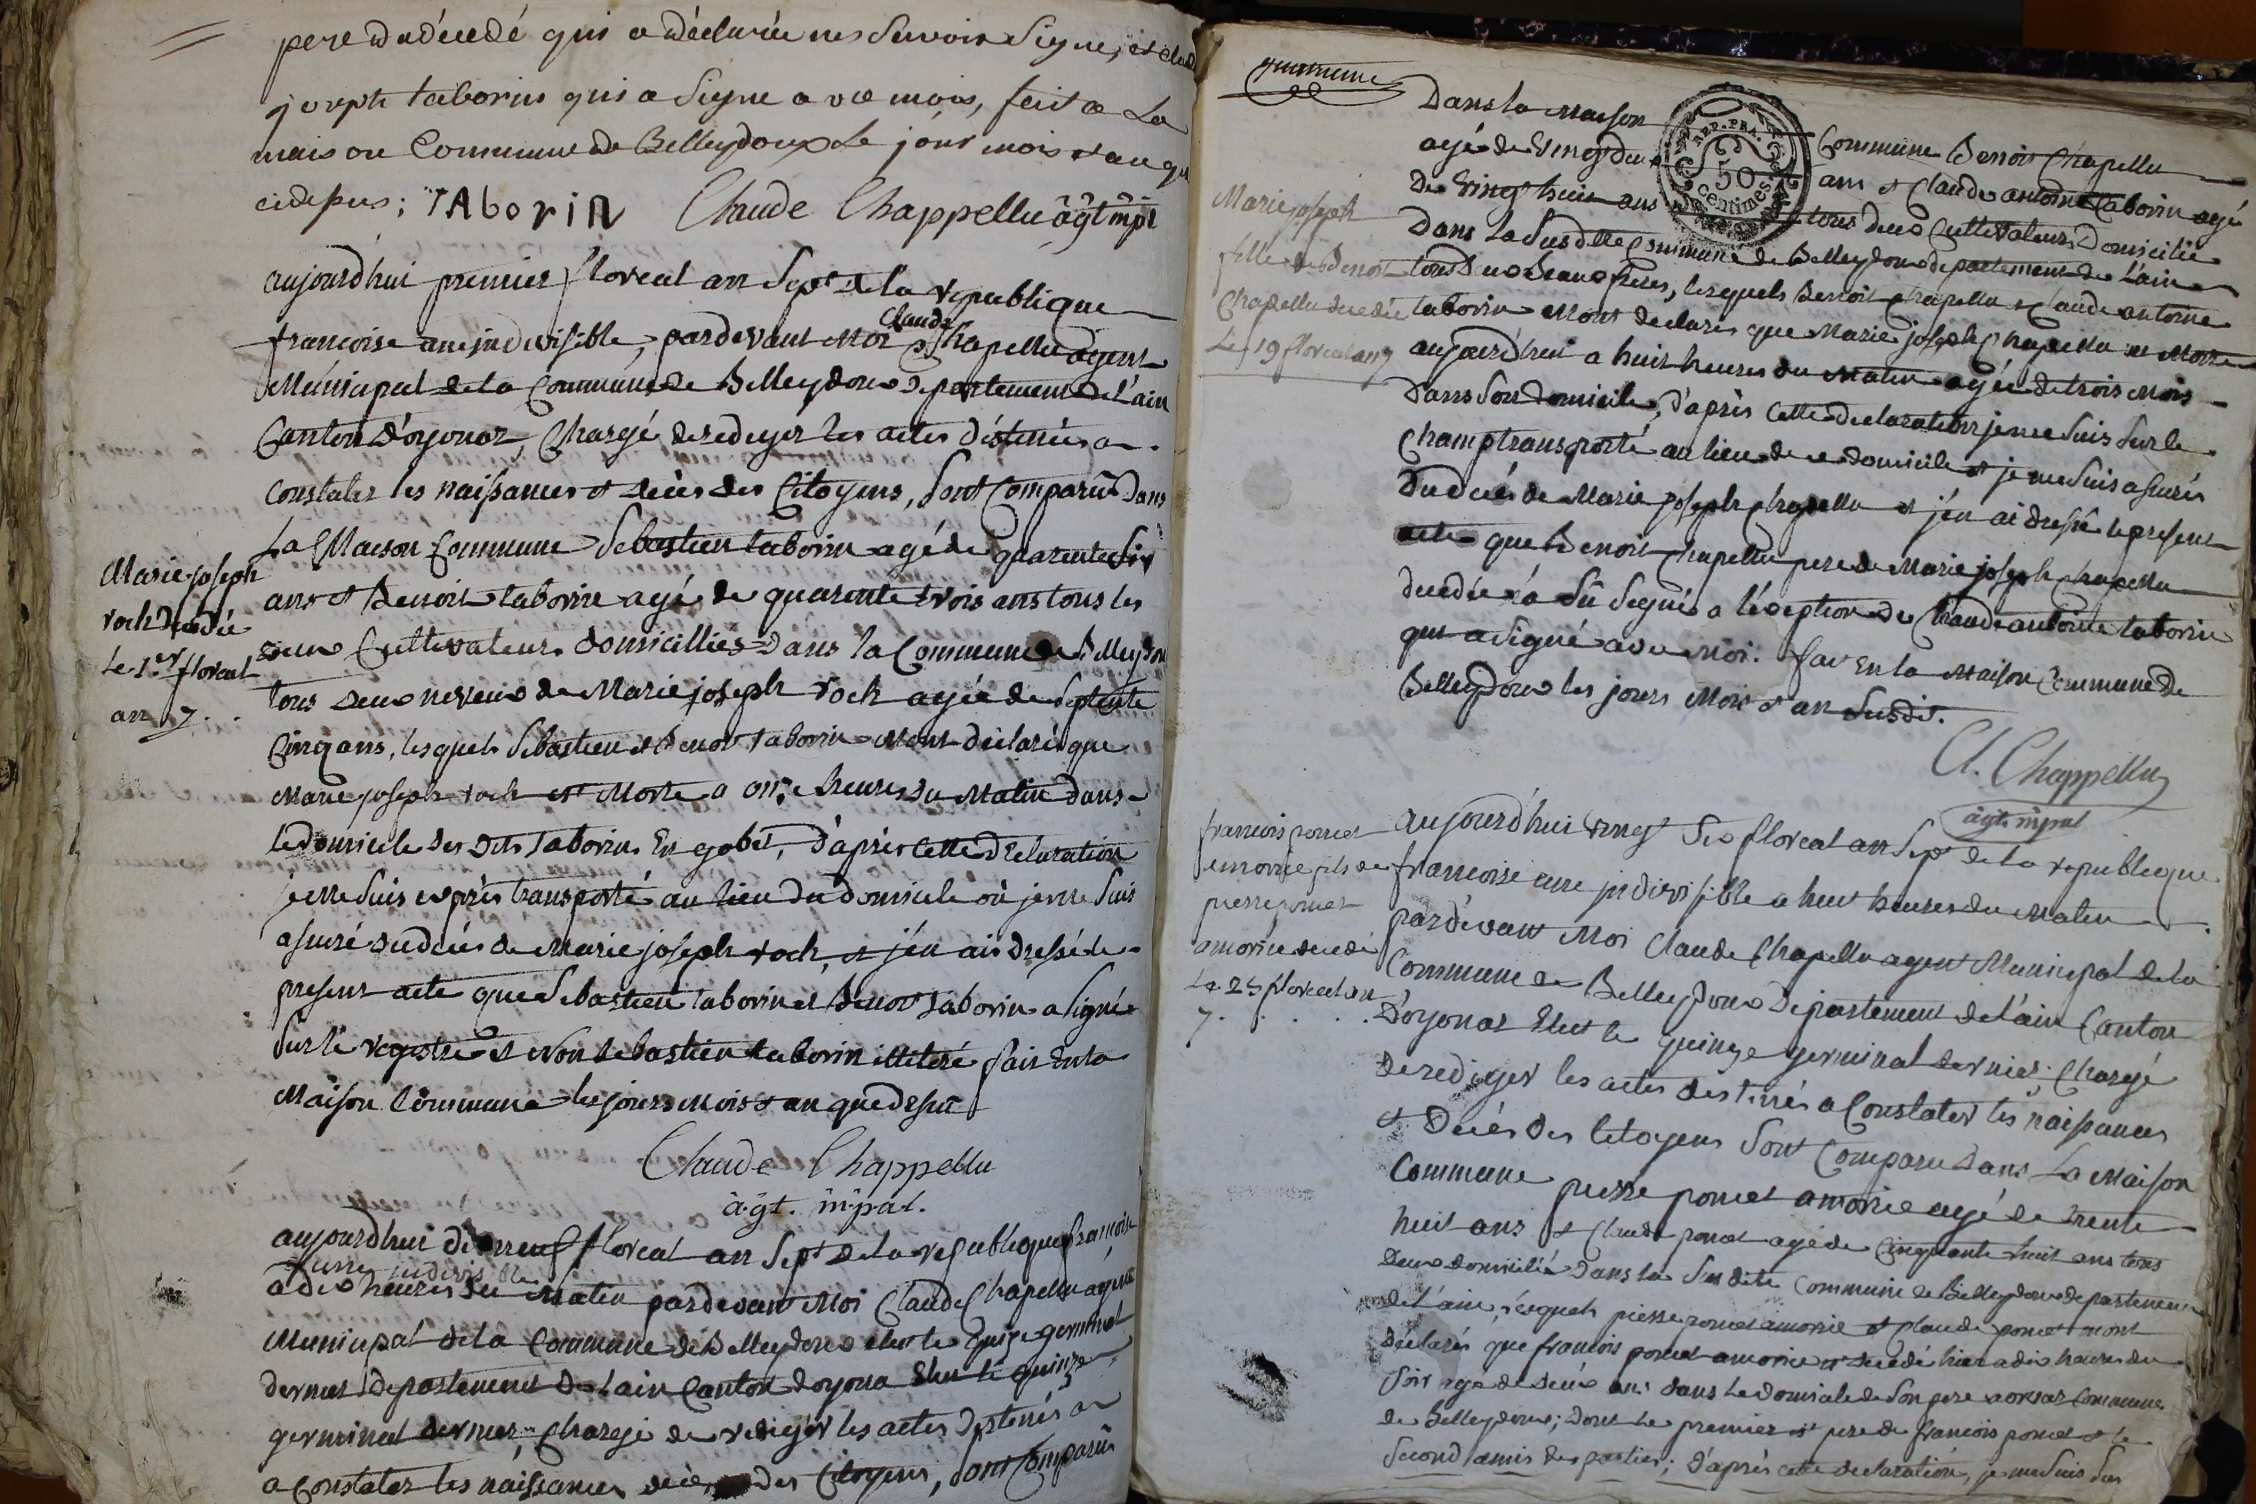 pere du decedé qui a déclarée ne savoir signe, et claude
joseph taborin qui a signe avec mois, fait a La
maison Commune de Belleydoux le jour mois et an que
cidesus; TAborin Claude Chappellu âgt mpl
aujourd'hui premier floreal an Sept de la republique
francoise une jndivisible, pardevant Moi Claude Chapellu agent
Municipal de la Commune de Belleydoux departement de L'ain
Canton d'oyonaz, Chargé de rediger les actes déstinés a
Constater les naissances et decès des Citoyens, sont Comparûs Dans
La Maison Commune Sebastien taborin agé de quarente six
Marie joseph
rock decedée
Le 1er floreal
an 7.
ans et Benoit taborin agé de quarente trois ans tous les
deux Cultivateurs domiciliés dans la Commune de Belleydoux
tous deux neveux de Marie joseph rock agée de septente
Cinq ans, lesquels Sebastien et Benoit taborin mont déclaré que
Marie joseph rock est Morte a onze heures du Matin dans
le domicile des dits taborin En gobet, d'après cette déclaration
je me suis exprès transporté au lieu du domicile où je me suis
assuré du decés de Marie joseph rock, et j'en ais dressé le
present acte que Sebastien taborin et Benoit taborin a signé
sur le registre et Non Sebastien taborin illiteré fait En la
Maison Commune les jours Mois et an que dessus
Claude Chappellu
âgt. m̂pal.
aujourd'hui dixneuf floreal an Sept de la republique francoise
une jndivisible
a dix heures du Matin pardevant Moi Claude Chapellu agent
Municipal de la Commune de Belleydoux elut le quinze germinal
dernier departement de Lain Canton doyona Elut le quinze
germinal dernier Chargé de rediger les actes destinés a
a Constater les naissances decès des Citoyens, sont Comparûs
Dans la Maison Commune Benoit Chapellu
agé de Vingt deux ans et Claude antoine taborin agé
de Vingt huit ans tous deux Cultivateurs Domicilié
REP. FRA.
50
Centimes
Dans La Susditte Commune de Belleydoux departement de L'ain
Marie joseph
fille de Benoit
Chapellu decedée
Le 19 floreal an 7
tous Deux Beaux freres, lesquels Benoit Chapellu et Claude antoine
taborin Mont declarés que Marie joseph Chapellu est Morte
aujourd'hui a huit heures du Matin agée de trois Mois
Dans son domicile, d'après cette declaration je me suis sur le
Champ transporté au lieu de ce domicile et je me suis assurés
Du decés de Marie joseph Chapellu et j'en ai dressé le present
acte que Benoit Chapellu pere de Marie joseph Chapellu
decedée a Sû Signé a l'éxeption de Claude antoine taborin
qui a signé avec Moi. fait En la Maison Commune de
Belleydoux les jours Mois et an susdit.
Cl. Chappellu
âgt. m̂pal
francois poncet
amorice fils de
pierre poncet
amorice decedé
Le 25 floreal an
7.
aujourd'hui vingt Six floreal an Sept de la republique
francoise une jndivisible a huit heures du Matin
pardevant Moi Claude Chapellu agent Municipal de la
Commune de Belleydoux Departement de L'ain Canton
D'oyonas Elut le quinze germinal dernier: Chargé
de rediger les actes destinés a Constater les naissances
et Decès des Citoyens sont Comparu Dans La Maison
Commune pierre poncet amorice agé de trente
huit ans et Claude poncet agé de Cinquante huit ans tous
Deux domicilié Dans la Susdite Commune de Belleydoux departement
de L'ain, lesquels pierre poncet amorice et Claude poncet mont
déclarés que francois poncet amorice est decedé hier a dix heures du
soir agé de deux ans dans Le domicile de son pere a orvaz Commune
de Belleydoux; dont Le premier est pere de francois poncet et le
second amis des parties; d'après cette declaration, je me suis sur